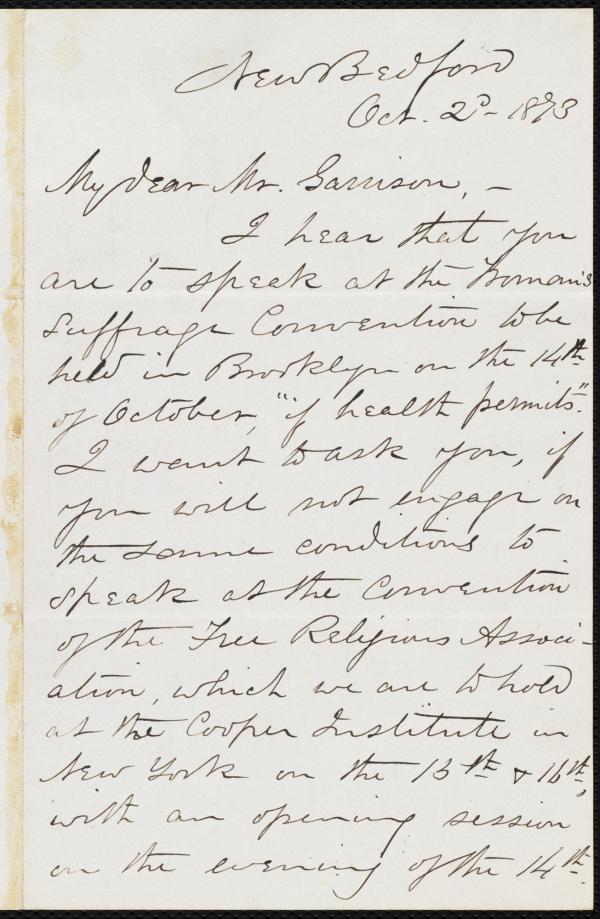 New Bedford
Oct. 2d- 1873
My dear Mr. Garrison, -
I hear that you
are to speak at the Woman's
Suffrage Convention to be
held in Brooklyn on the 14th
of October, "if health permits."
I want to ask you, if
you will not engage on
the same conditions to
speak at the Convention
of the Free Religious Associ-
ation, which we are to hold
at the Cooper Institute in
New York on the 15th & 16th,
with an opening session
on the evening of the 14th.